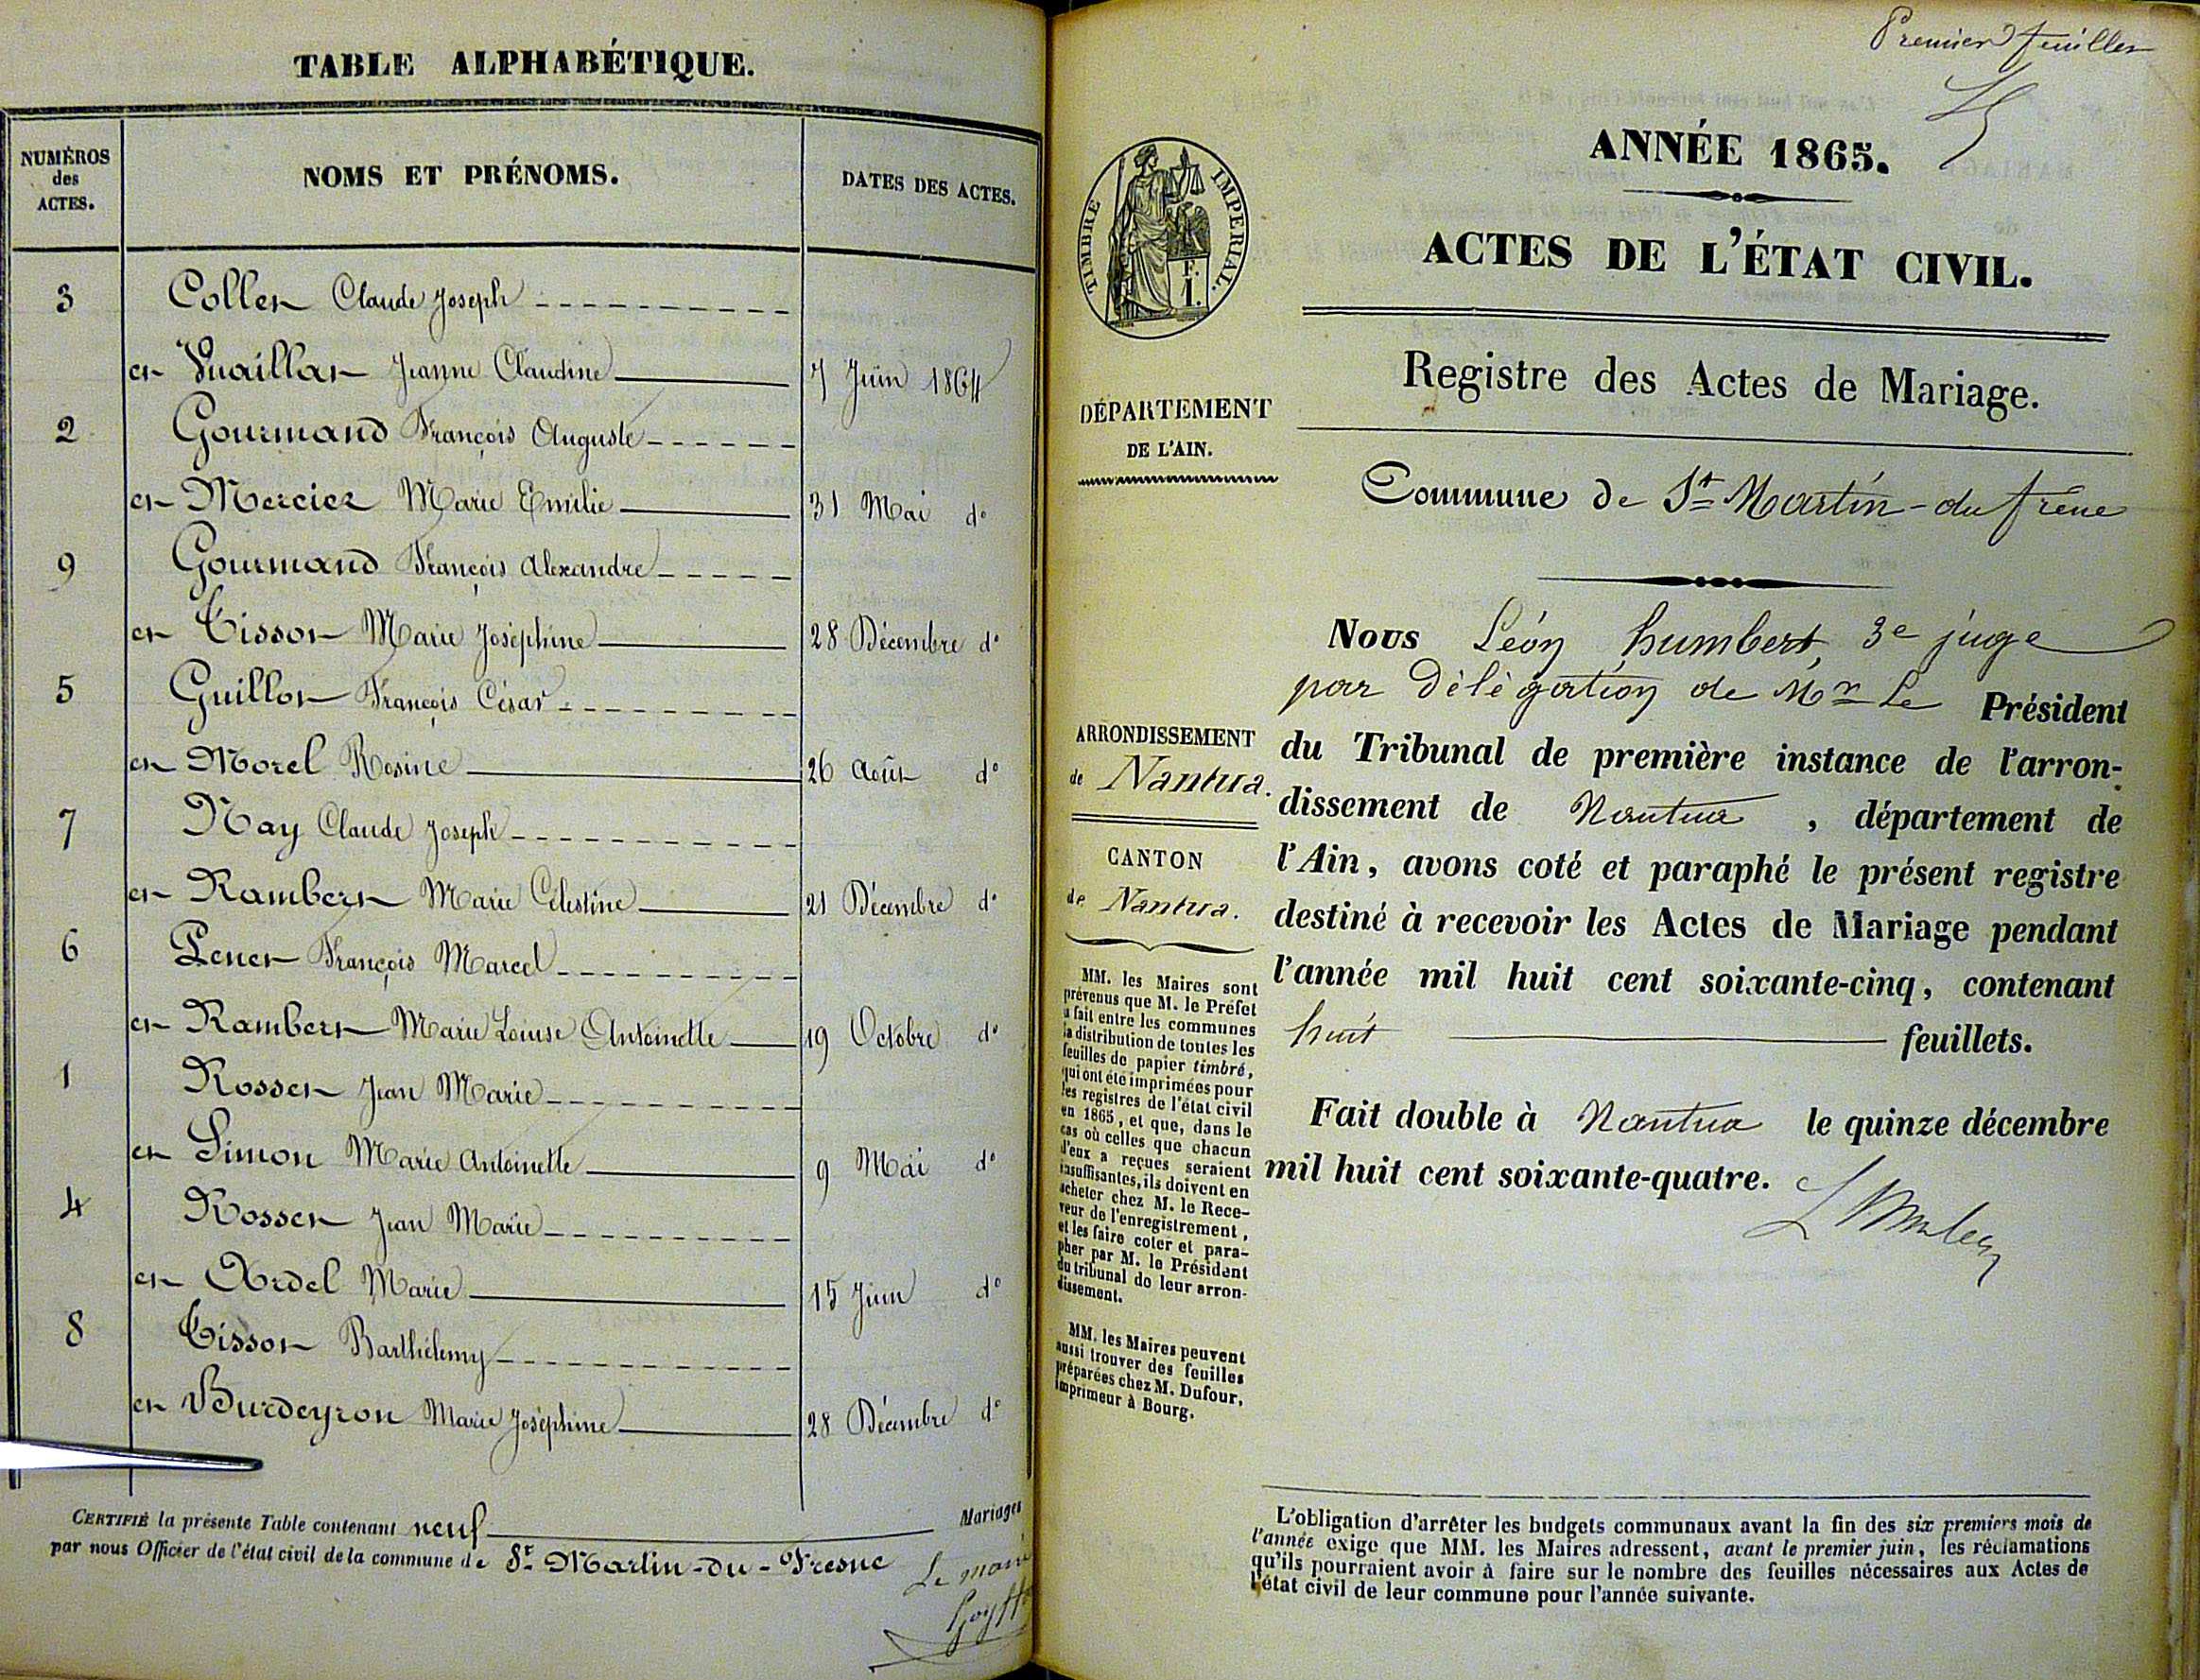 TABLE ALPHABÉTIQUE.
NUMÉROS des ACTES.
NOMS ET PRÉNOMS.
DATES DES ACTES.
3 Collet Claude Joseph
et Vuaillat Jeanne Claudine 7 Juin 1864
2 Gourmand François Auguste
et Mercier Marie Emilie 31 Mai do
9 Gourmand François Alexandre
et Tissot Marie Joséphine 28 Décembre do
5 Guillot François César
et Morel Rosine 26 Août do
7 Nay Claude Joseph
et Rambert Marie Célestine 21 Décembre do
6 Penet François Marcel
et Rambert Marie Louise Antoinette 19 Octobre do
1 Rosset Jean Marie
et Simon Marie Antoinette 9 Mai do
4 Rosset Jean Marie
et Ardel Marie 15 Juin do
8 Tissot Barthélemy
et Burdeyron Marie Joséphine 28 Décembre do
CERTIFIÉ la présente Table contenant neuf Mariages
par nous Officier de l'état civil de la commune de St Martin-du-Fresne
Le maire
Premier feuillet
TIMBRE IMPERIAL.
F. I.
ANNÉE 1865.
ACTES DE L'ÉTAT CIVIL.
Registre des Actes de Mariage.
DÉPARTEMENT
DE L'AIN.
Commune de St Martin-du frene
ARRONDISSEMENT
de Nantua.
CANTON
de Nantua.
MM. les Maires sont
prévenus que M. le Préfet
a fait entre les communes
la distribution de toutes les
feuilles de papier timbré,
qui ont été imprimées pour
les registres de l'état civil
en 1865, et que, dans le
cas où celles que chacun
d'eux a reçues seraient
insuffisantes, ils doivent en
acheter chez M. le Rece-
veur de l'enregistrement,
et les faire coter et para-
pher par M. le Président
du tribunal de leur arron-
dissement.
MM. les Maires peuvent
aussi trouver des feuilles
préparées chez M. Dufour,
imprimeur à Bourg.
Nous Léon humbert, 3e juge
par délégation de Mr Le Président
du Tribunal de première instance de l'arron-
dissement de Nantua, département de
l'Ain, avons coté et paraphé le présent registre
destiné à recevoir les Actes de Mariage pendant
l'année mil huit cent soixante-cinq, contenant
huit feuillets.
Fait double à Nantua le quinze décembre
mil huit cent soixante-quatre.
L'obligation d'arrêter les budgets communaux avant la fin des six premiers mois de
l'année exige que MM. les Maires adressent, avant le premier juin, les réclamations
qu'ils pourraient avoir à faire sur le nombre des feuilles nécessaires aux Actes de
l'état civil de leur commune pour l'année suivante.